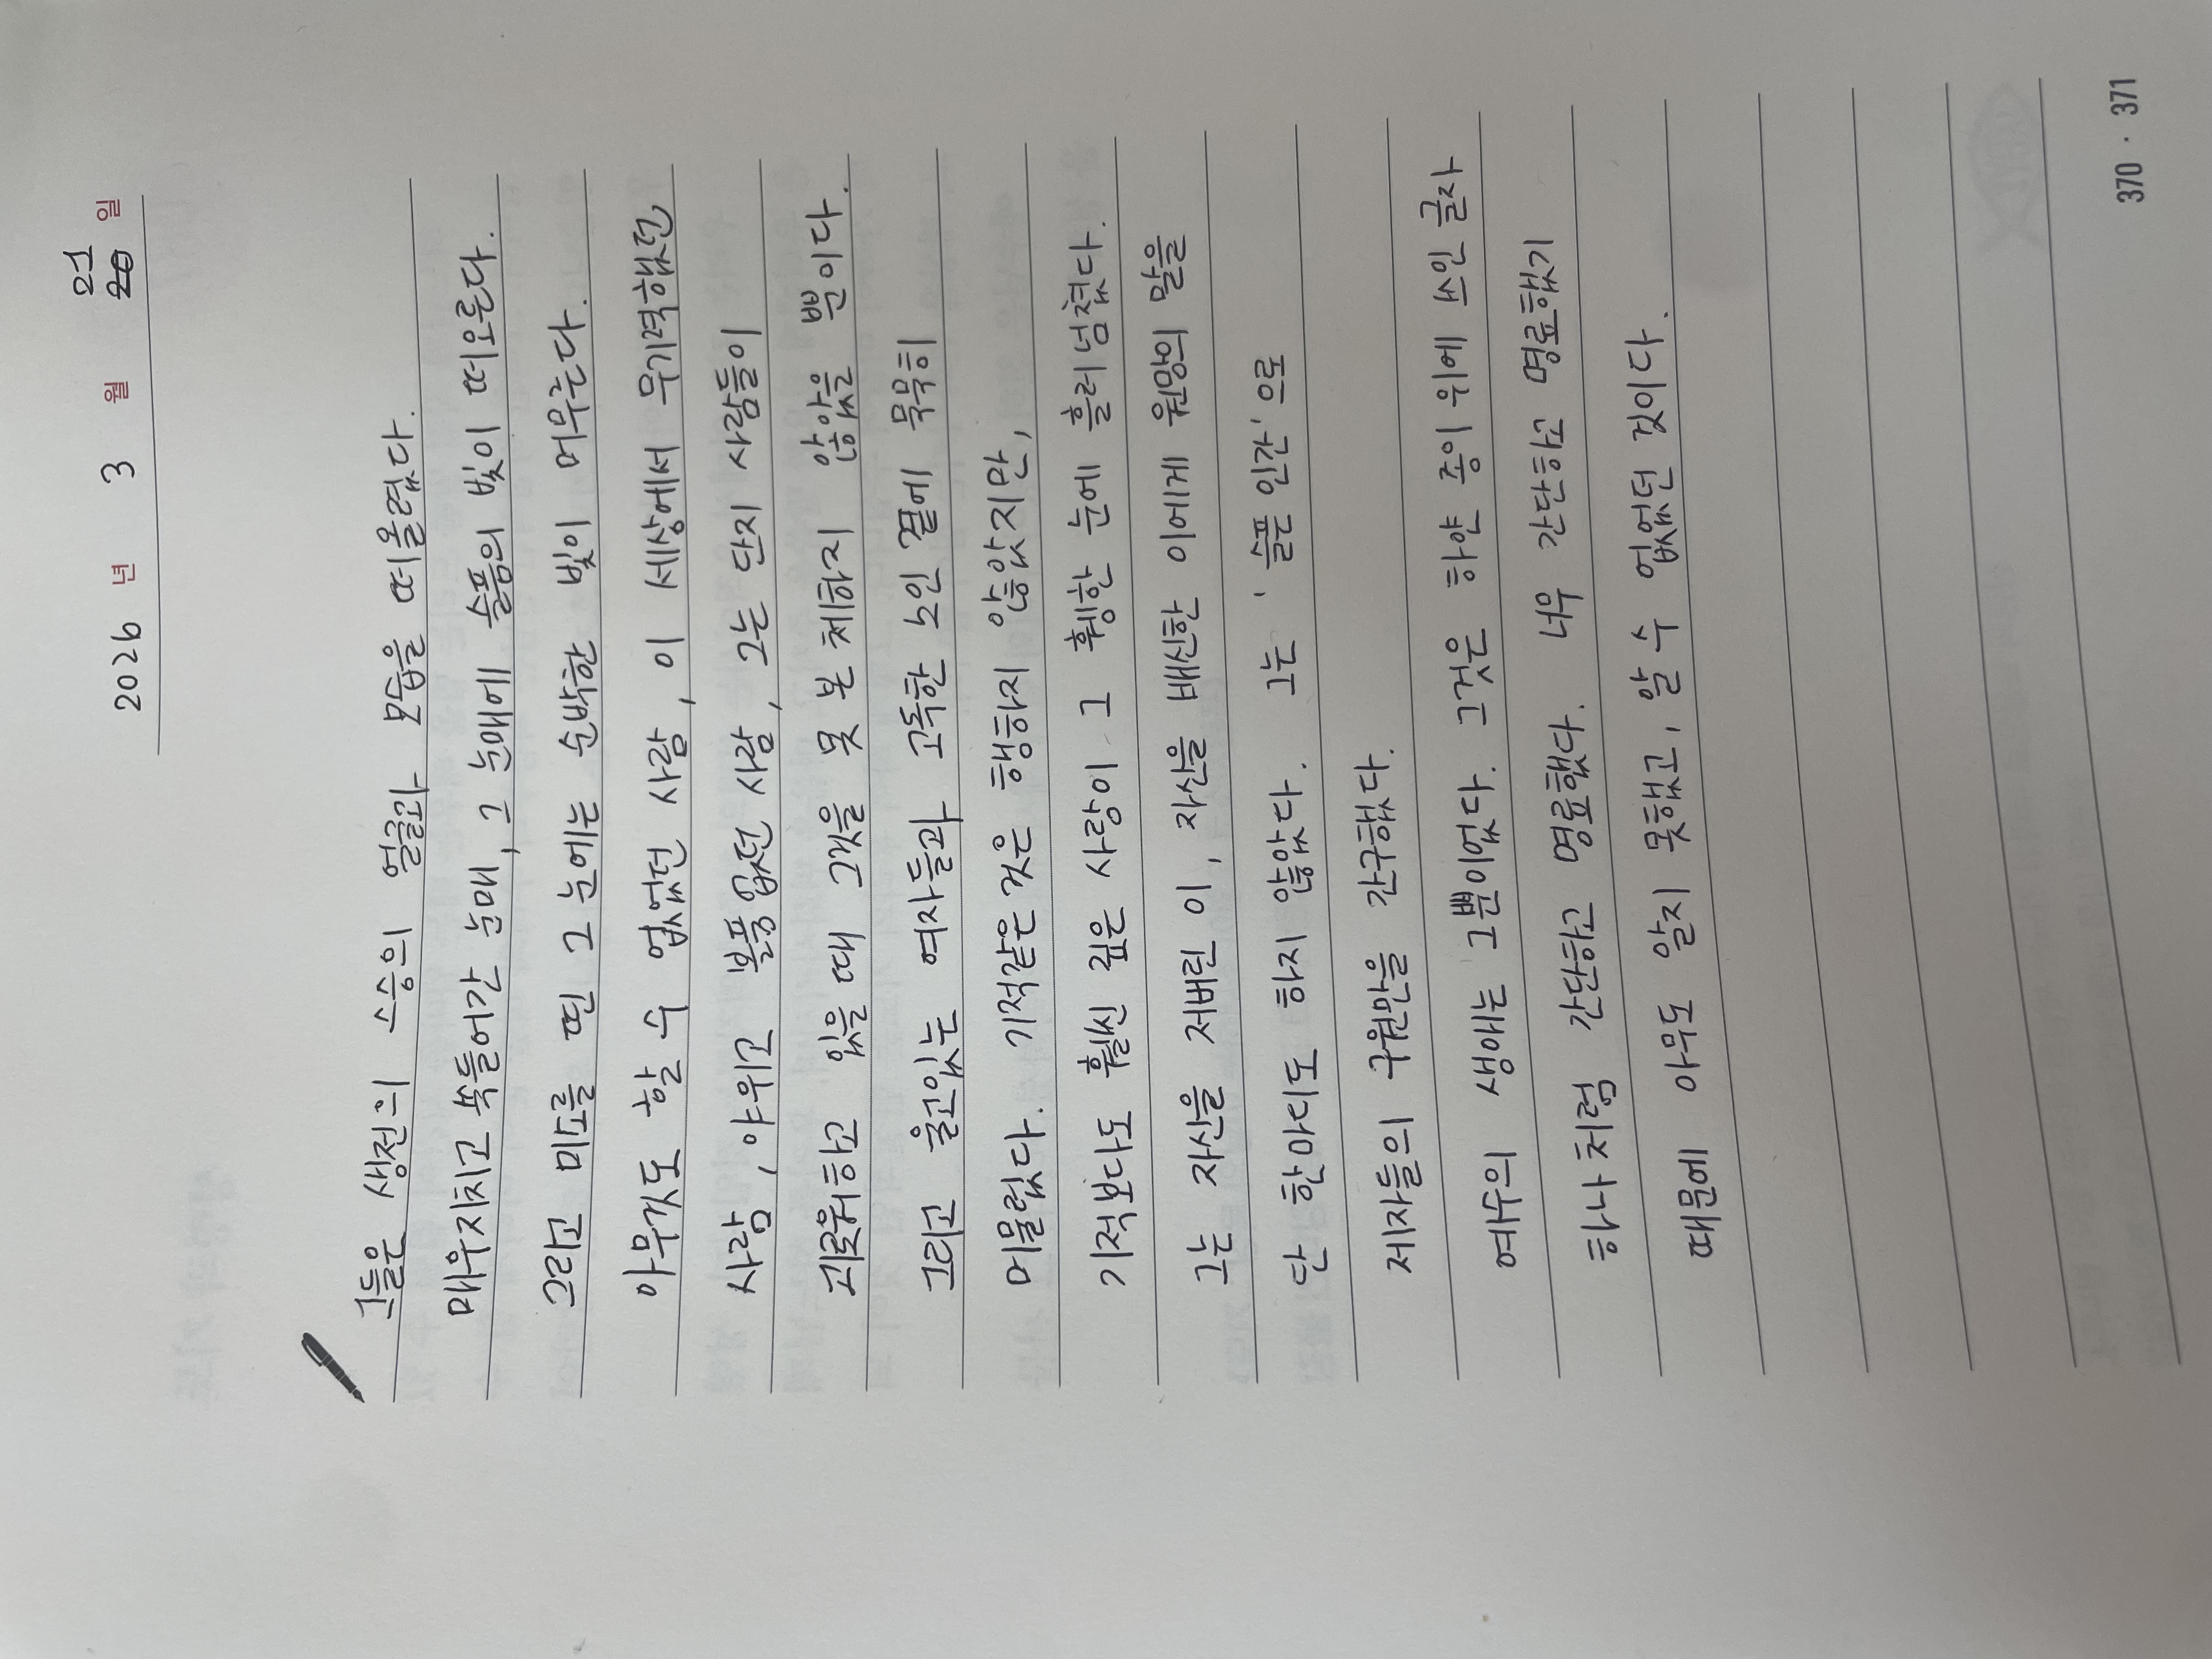 2026 년 3 월 21 일
그들은 생전의 스승의 얼굴과 모습을 떠올렸다.
매우지치고 쏙들어간 눈매, 그 눈매에 슬픔의 빛이 떠오른다.
그리고 미소를 띤 그 눈에는 순박한 빛이 머무른다.
아무것도 할 수 없었던 사람, 이 세상에서 무기력했던
사람, 야위고 볼품없던 사람, 그는 단지 사람들이
괴로워하고 있을 때 그것을 못 본 체하지 않았을 뿐이다.
그리고 울고있는 여자들과 고독한 노인 곁에 묵묵히
머물렀다. 기적같은 것은 행하지 않았지만,
기적보다도 훨씬 깊은 사랑이 그 휑한 눈에 흘러넘쳤다.
그는 자신을 저버린 이, 자신을 배신한 이에게 원망의 말을
단 한마디도 하지 않았다. 그는 '슬픈 인간'으로
제자들의 구원만을 간구했다.
예수의 생애는 그뿐이었다. 그것은 하얀 종이 위에 쓰인 글자
하나 처럼 간단하고 명료했다. 너무 간단하고 명료했기
때문에 아무도 알지 못했고, 알 수 없었던 것이다.
370 · 371